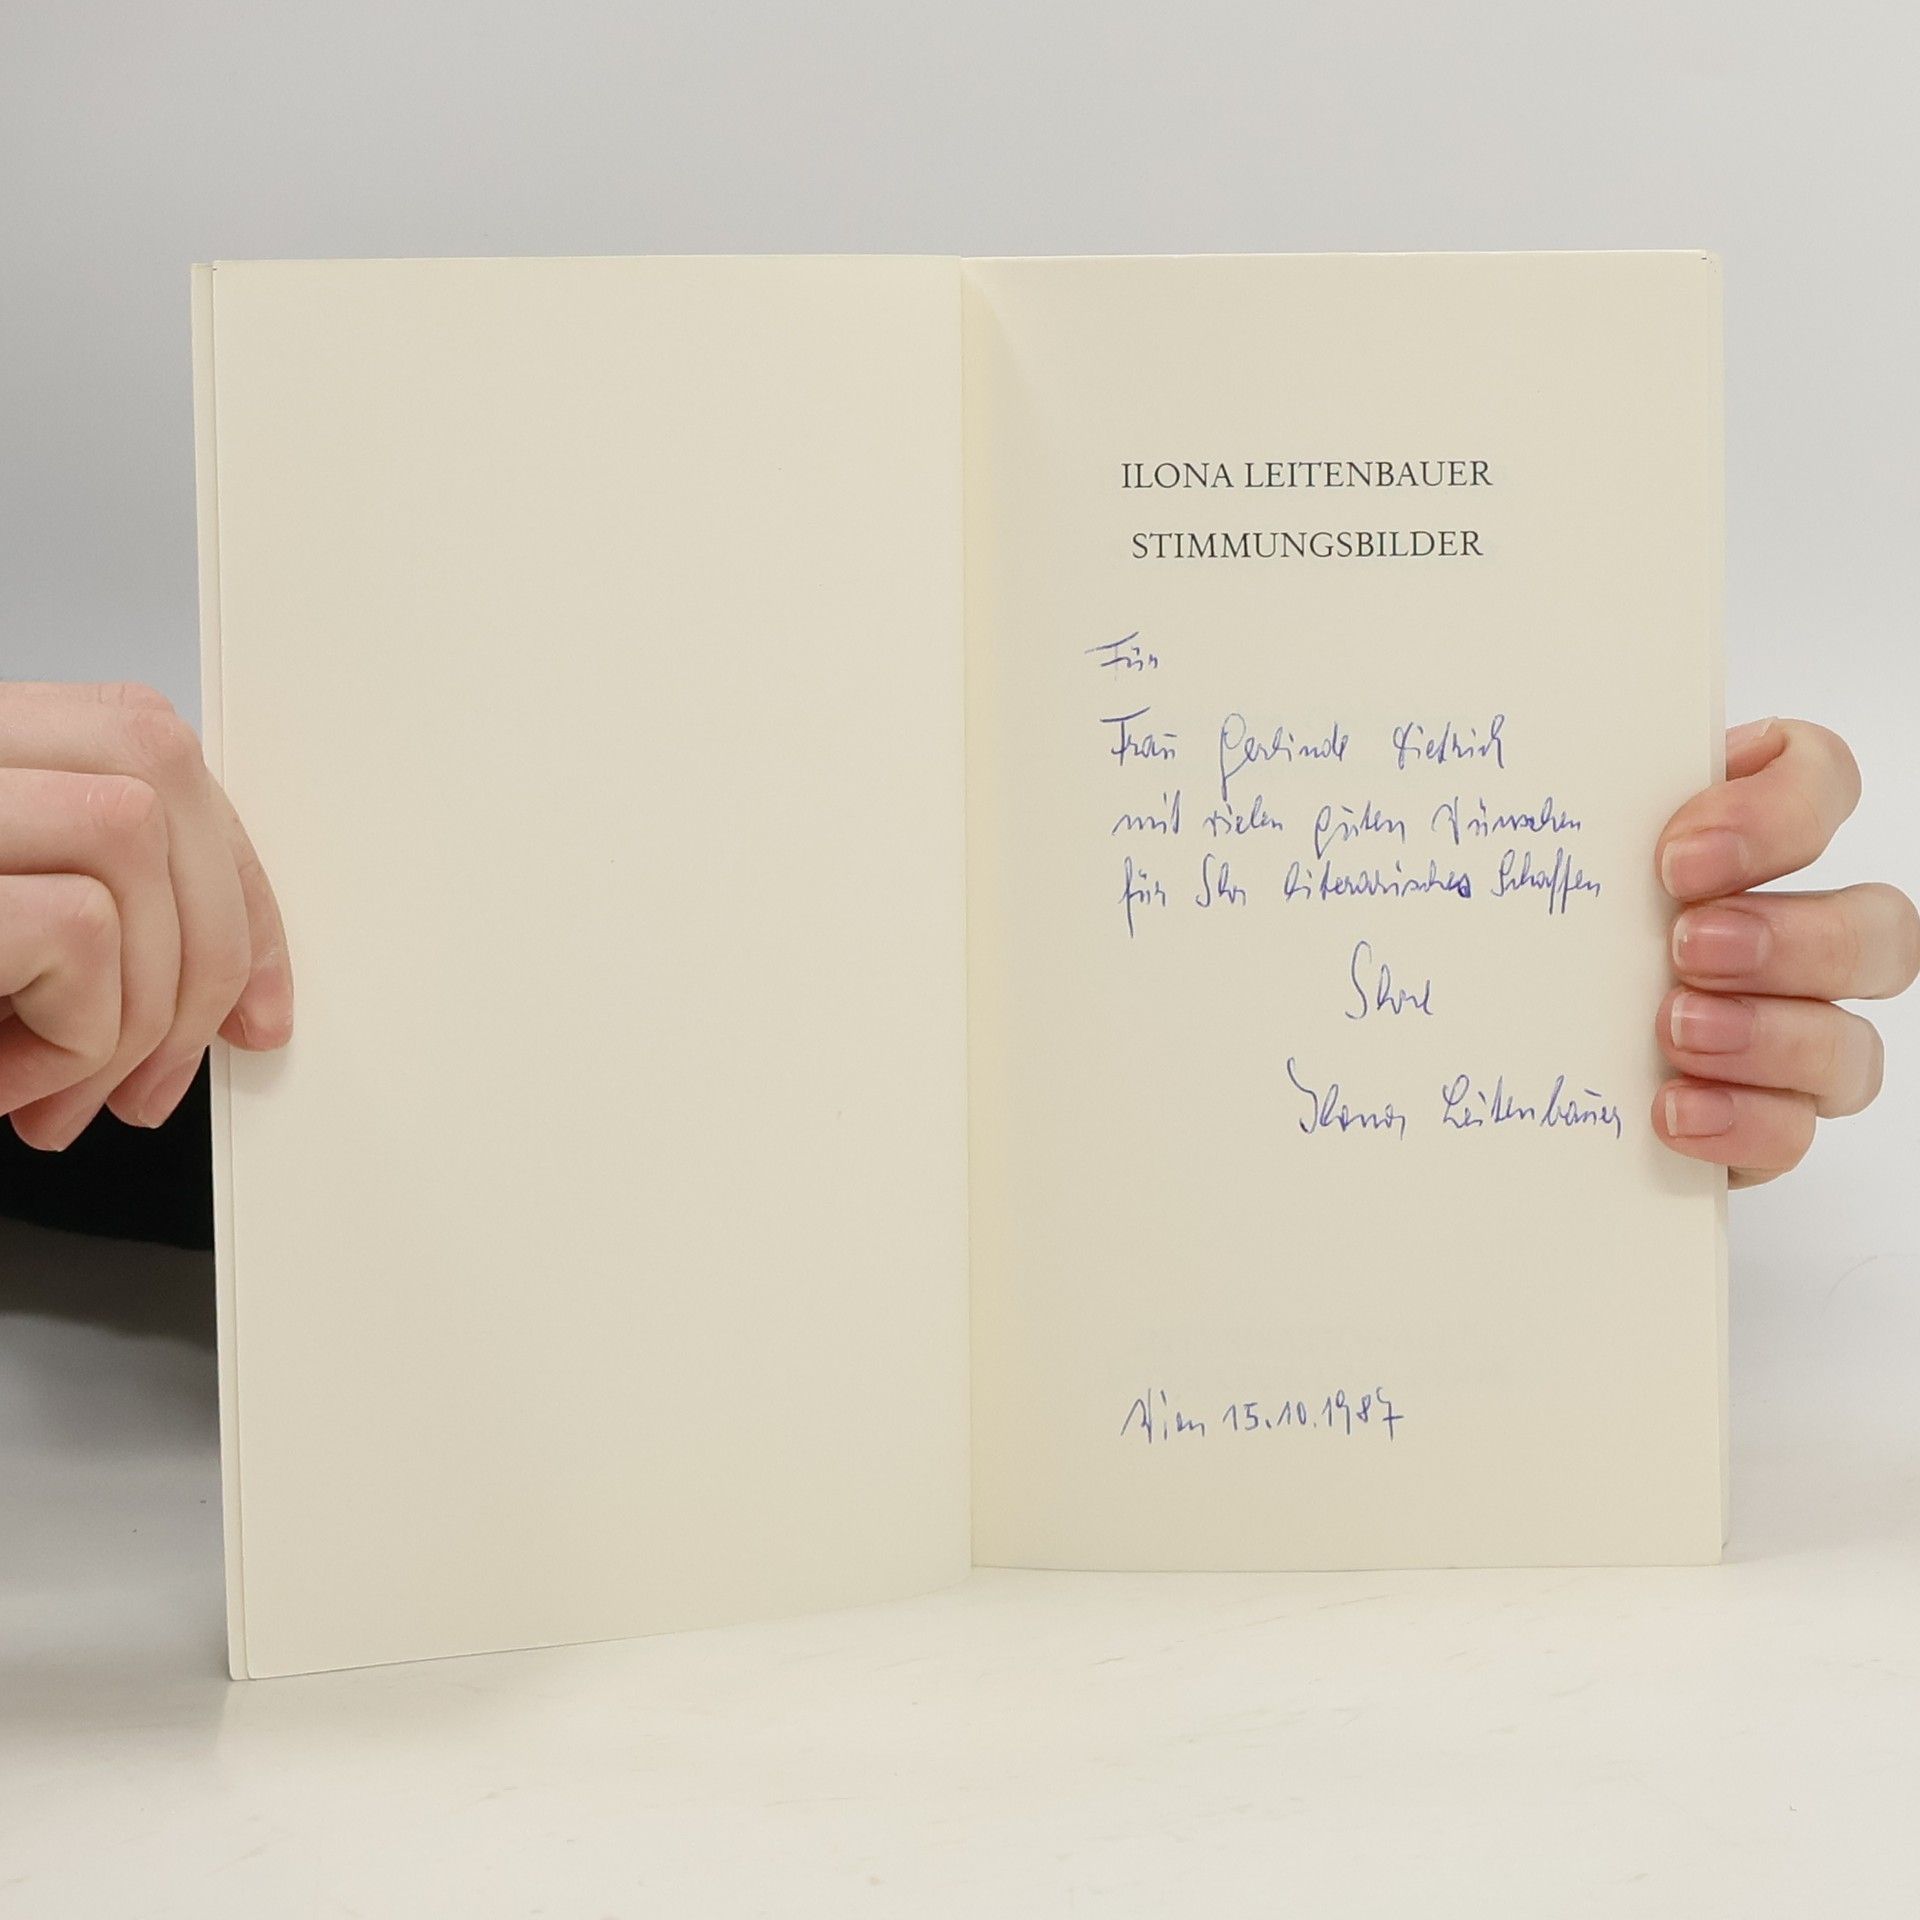 ILONA LEITENBAUER
STIMMUNGSBILDER
Für
Frau Gerlinde Dietrich
mit vielen guten Wünschen
für Ihr literarisches Schaffen
Ihre
Ilona Leitenbauer
Wien 15.10.1987